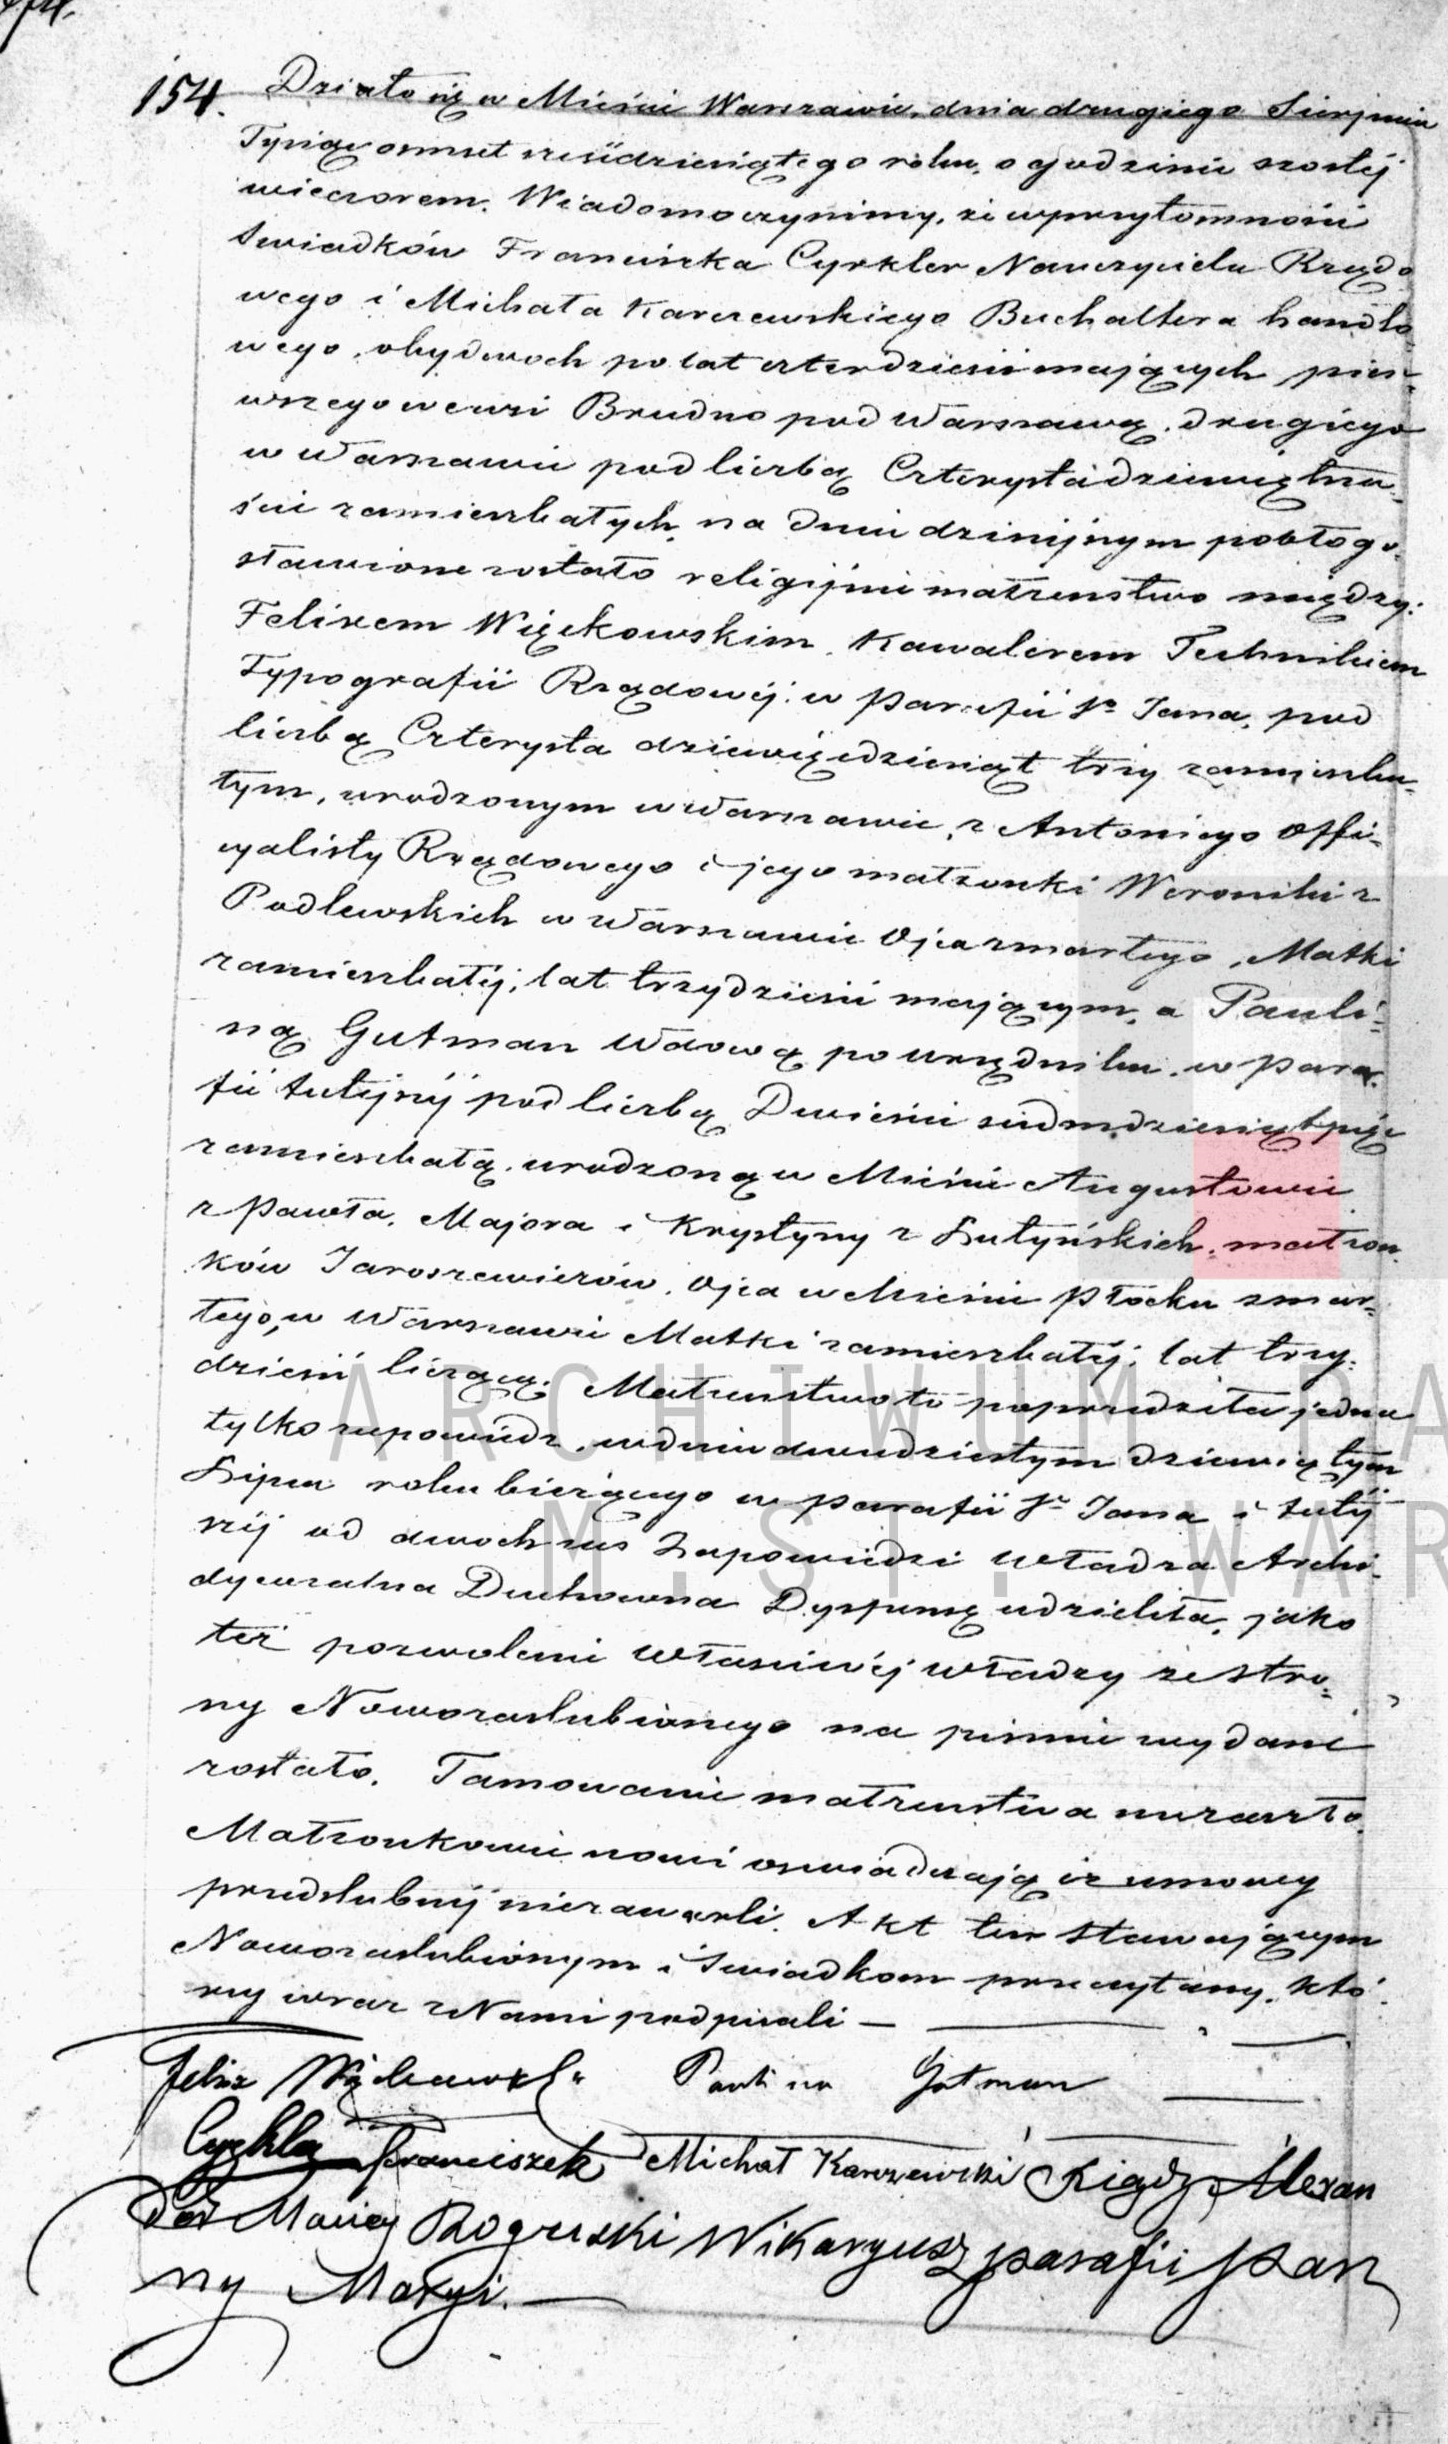 154. Działo się w Mieście Warszawie, dnia drugiego Sierpnia
Tysiąc osmset sześćdziesiątego roku, o godzinie szostéj
wieczorem. Wiadomo czynimy, że w przytomności
Swiadków Franciszka Cyrkler Nauczyciela Rządo
wego i Michała Karczewskiego Buchaltera handlo,
wego, obydwoch po lat czterdzieści mających pier-
wszego we wsi Brudno pod Warszawą, drugiego
w Warszawie pod liczbą Czterysta dziewiętna-
ście zamieszkałych, na dniu dzisiejszym pobłogo-
sławione zostało religijnie małżenstwo między:
Felixem Więckowskim, Kawalerem Technikiem
Typografii Rządowéj, w parafii Sgo Jana, pod
liczbą Czterysta dziewięćdziesiąt trzy zamieszka-
łym, urodzonym w Warszawie, z Antoniego Offi-
cyalisty Rządowego i jego małżonki Weroniki z
Podlewskich w Warszawie Ojca zmarłego, Matki
zamieszkałéj, lat trzydzieści mającym, a Pauli-
ną Gutman Wdową po urzędniku, w para-
fii tutejszéj pod liczbą Dwieście siedmdziesiąt pięć
zamieszkałą, urodzoną w Mieście Augustowie
z Pawła, Majora i Krystyny z Łutyńskich, małżon
ków Jaroszewiczów, Ojca w Mieście Płocku zmar-
łego, w Warszawie Matki zamieszkałéj, lat trzy-
dzieści liczącą. Małżenstwo to poprzedziła jedna
tylko zapowiedź, w dniu dwudziestym dziewiątym
Lipca roku bieżącego w parafii Sgo Jana i tutéj
széj od dwoch zas Zapowiedzi Władza Archi-
dyecezalna Duchowna Dyspensę udzieliła, jako
też pozwolenie właściwéj władzy ze stro-
ny Nowozaslubionego na pismie wydane
zostało. Tamowanie małżenstwa nie zaszło.
Małżonkowie nowi oswiadczają iż umowy
przedslubnéj niezawarli. Akt ten stawającym
Nowozaslubionym i Swiadkom przeczytany, któ-
rzy wraz z Nami podpisali —
Felix Więckowski Paulina Gutman
Cyrkler Franciszek Michał Karczewski Xiądz Alexan
der Maciej Rogulski Wikaryusz parafii Pan
ny Maryi.
ARCHIWUM PA
M. ST. WAR